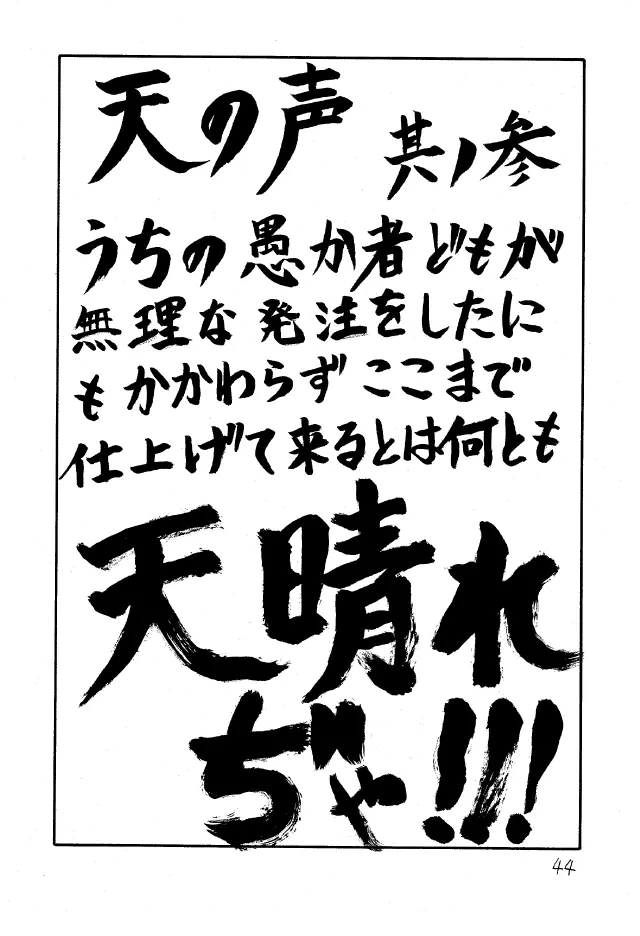 天の声 其ノ参
うちの愚か者どもが
無理な発注をしたに
もかかわらずここまで
仕上げて来るとは何とも
天晴れ
ぢゃ!!!
44